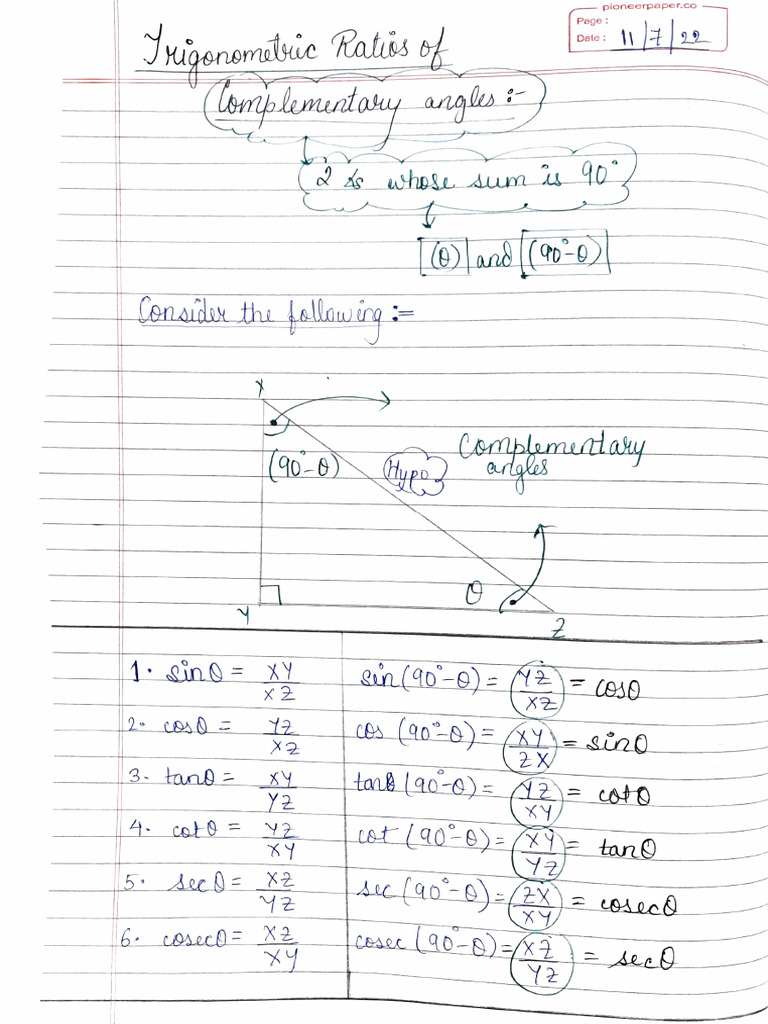 pioneerpaper.co
Page :
Date : 11/7/22
Trigonometric Ratios of
Complementary angles :-
2 ∠s whose sum is 90°
(θ) and (90°-θ)
Consider the following :=
X
(90°-θ)
Hypo
Complementary
angles
θ
Y
Z
1. sinθ = XY/XZ sin(90°-θ) = YZ/XZ = cosθ
2. cosθ = YZ/XZ cos (90°-θ) = XY/ZX = sinθ
3. tanθ = XY/YZ tanθ(90°-θ) = YZ/XY = cotθ
4. cotθ = YZ/XY cot (90°-θ) = XY/YZ = tanθ
5. secθ = XZ/YZ sec (90°-θ) = ZX/XY = cosecθ
6. cosecθ = XZ/XY cosec (90°-θ) = XZ/YZ = secθ